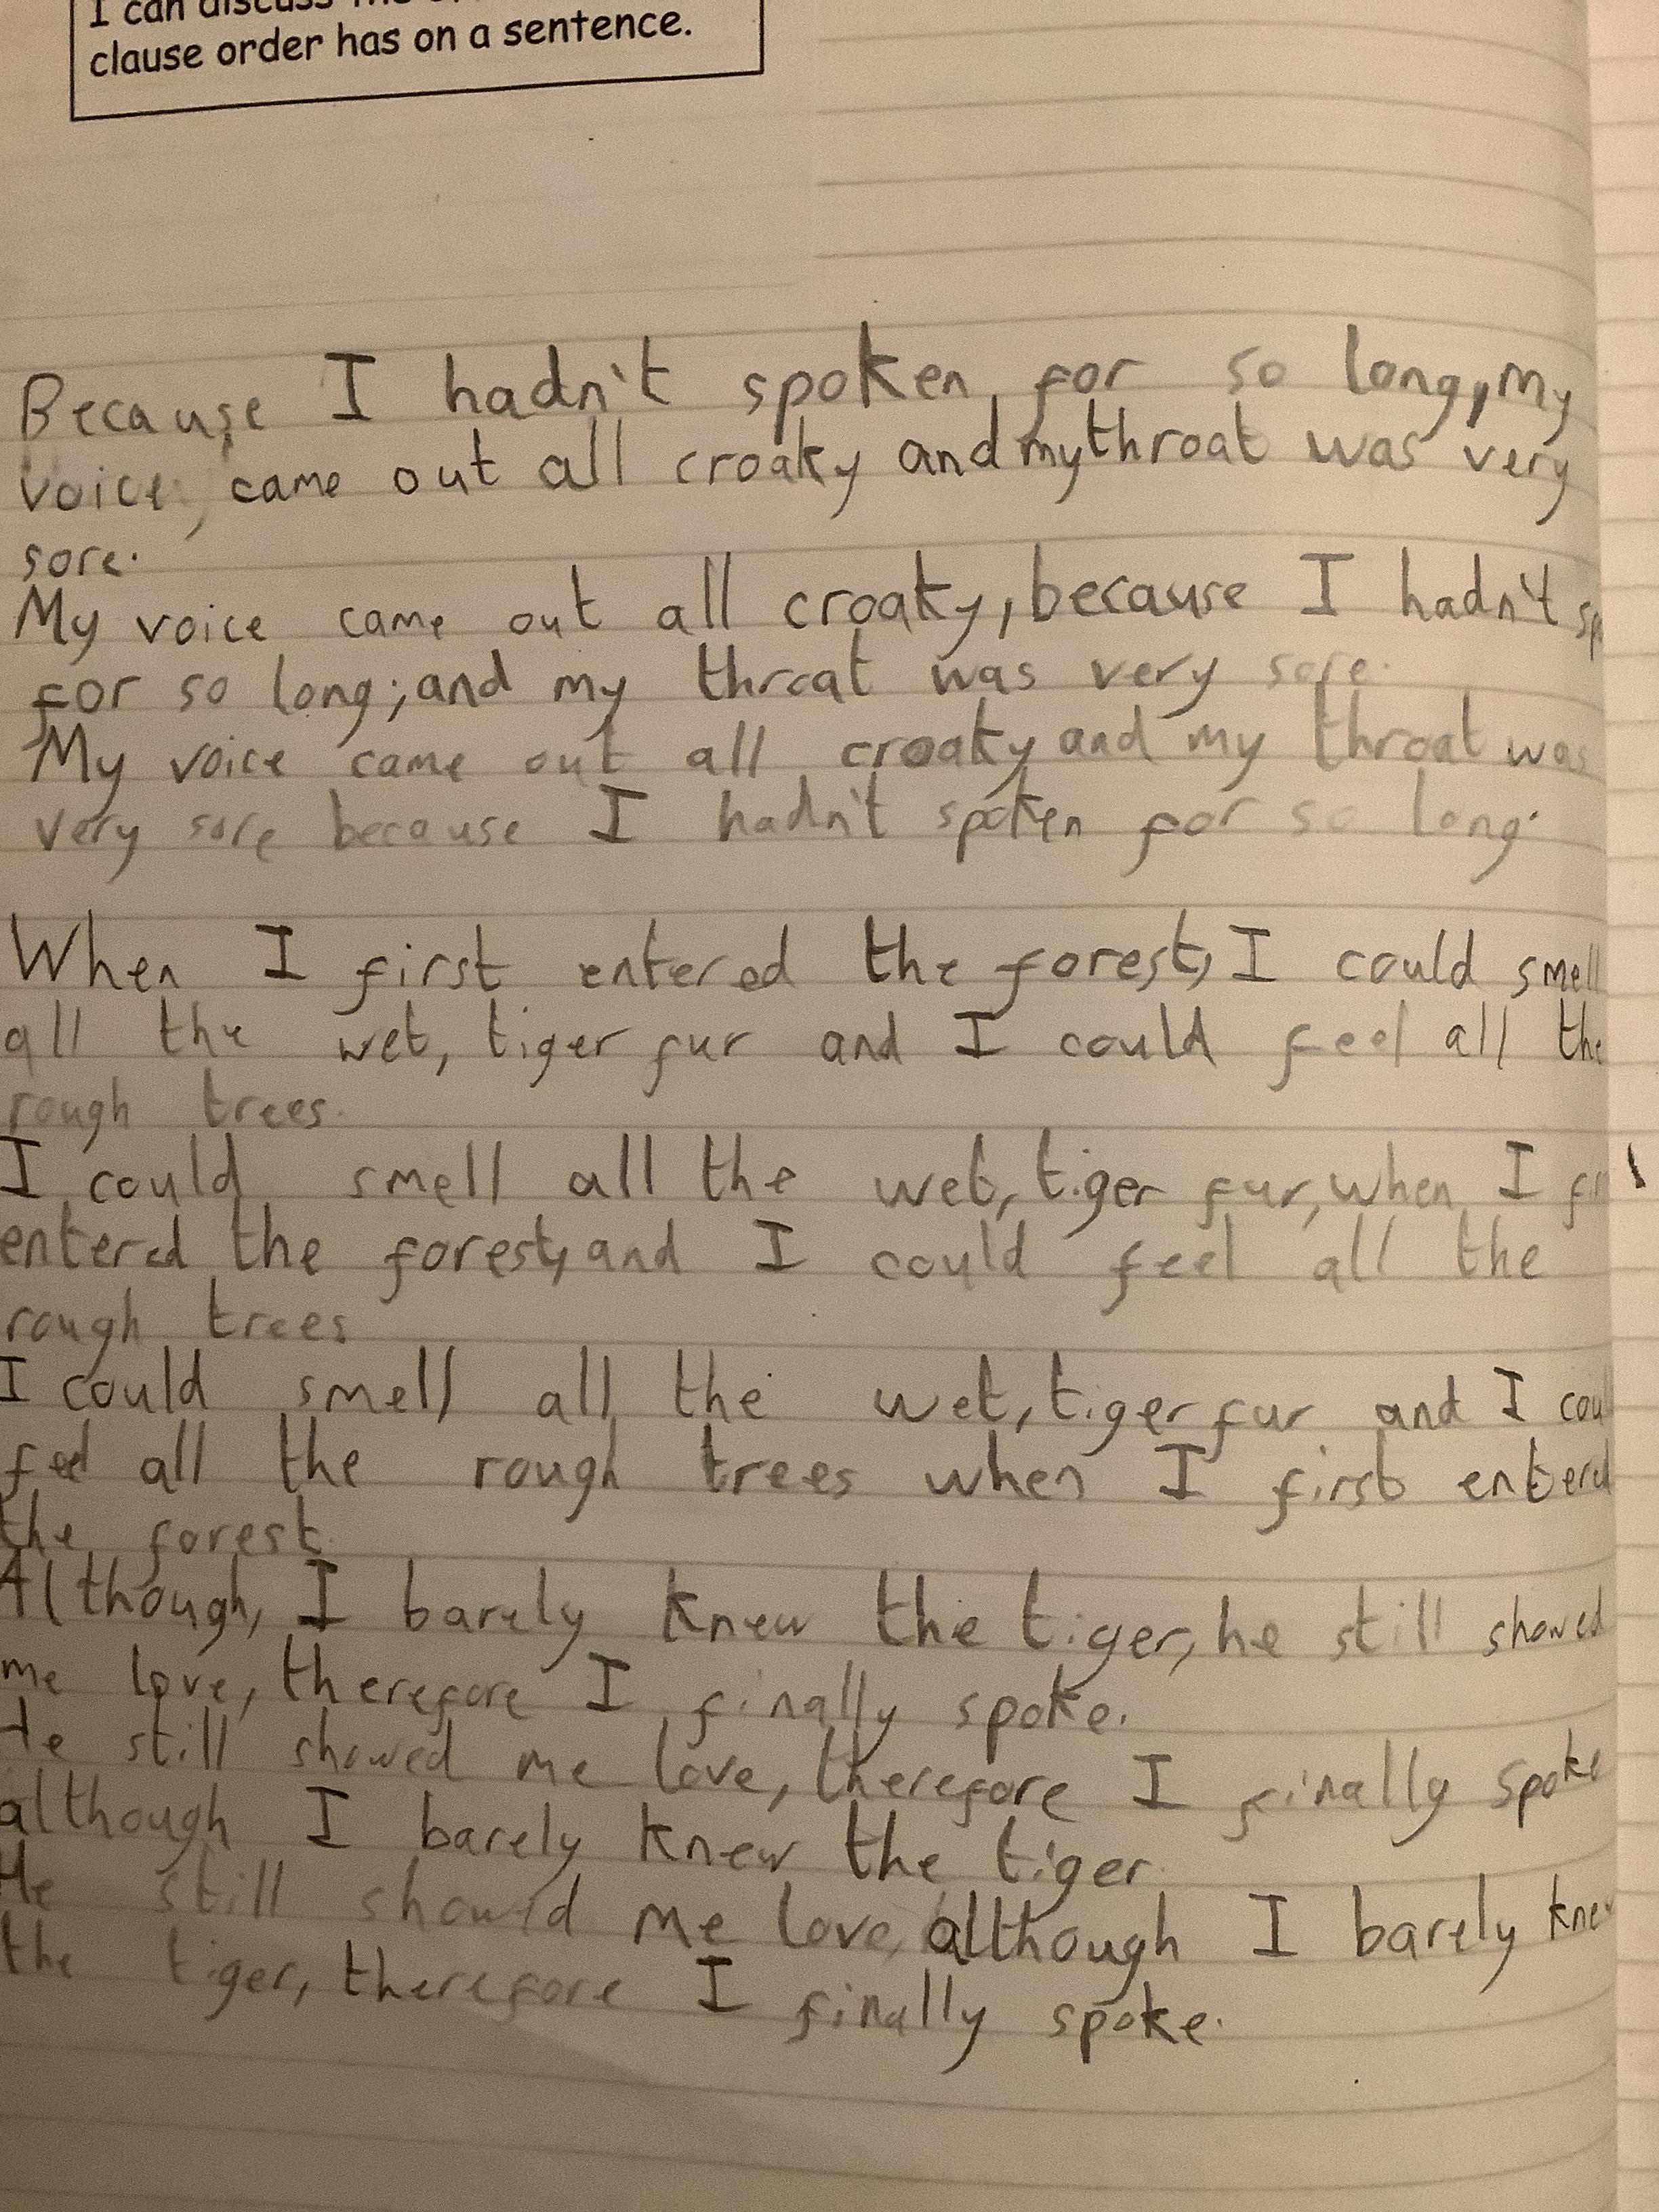 I can discuss
clause order has on a sentence.
Because I hadn't spoken for so long, my
voice, came out all croaky and my throat was very
sore.
My voice came out all croaky, because I hadn't
for so long, and my throat was very sore.
My voice came out all croaky and my throat was
very sore because I hadn't spoken for so long.
When I first entered the forest, I could smell
all the wet, tiger fur and I could feel all the
rough trees.
I could smell all the wet, tiger fur, when I
entered the forest, and I could feel all the
rough trees
I could smell all the wet, tiger fur and I
feel all the rough trees when I first entered
the forest.
Although, I barely knew the tiger, he still showed
me love, therefore I finally spoke.
He still showed me love, therefore I finally spoke
although I barely knew the tiger.
He still showed me love, although I barely knew
the tiger, therefore I finally spoke.